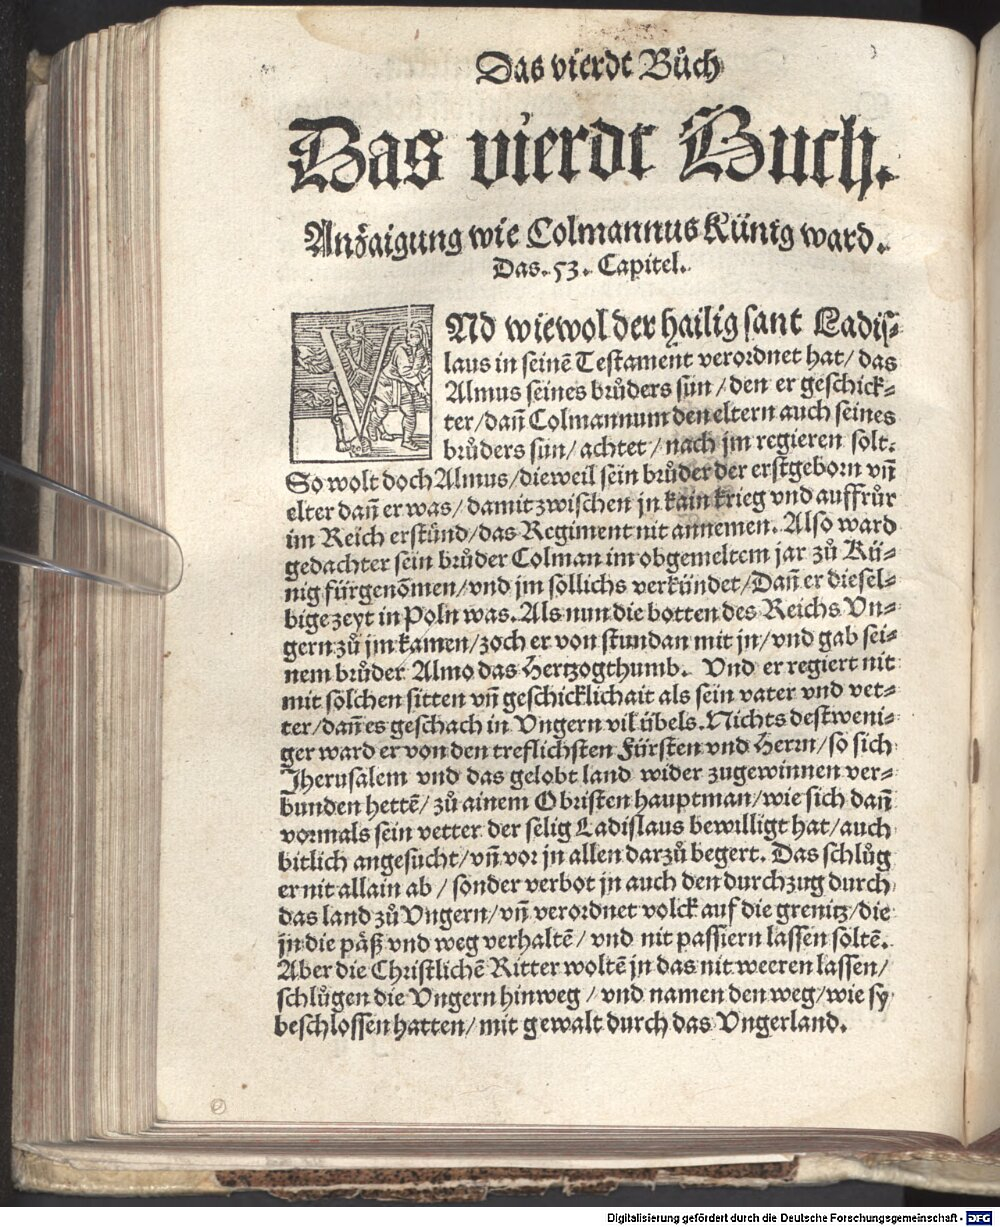 Das vierdt Bůch
Das vierdt Buch.
Anzaigung wie Colmannus Künig ward.
Das. 53. Capitel.
VNd wiewol der hailig sant Ladis⸗
laus in seinē Testament verordnet hat/ das
Almus seines brůders sun/ den er geschick⸗
ter/ dañ Colmannum den eltern auch seines
brůders sun/ achtet/ nach jm regieren solt.
So wolt doch Almus/ dieweil sein brůder der erstgeborn vñ
elter dañ er was/ damit zwischen jn kain krieg vnd auffrůr
im Reich erstünd/ das Regiment nit annemen. Also ward
gedachter sein brůder Colman im obgemeltem jar zů Kü⸗
nig fürgenōmen/ vnd jm söllichs verkündet/ Dañ er diesel⸗
bige zeyt in Poln was. Als nun die botten des Reichs Vn⸗
gern zů jm kamen/ zoch er von stundan mit jn/ vnd gab sei⸗
nem brůder Almo das Hertzogthumb. Vnd er regiert nit
mit solchen sitten vñ geschicklichait als sein vater vnd vet⸗
ter/ dañ es geschach in Vngern vil übels. Nichts destweni⸗
ger ward er von den treflichsten Fürsten vnd Herrn/ so sich
Jherusalem vnd das gelobt land wider zugewinnen ver⸗
bunden hettē/ zů ainem Obristen hauptman/ wie sich dañ
vormals sein vetter der selig Ladislaus bewilligt hat/ auch
bitlich angesucht/ vñ vor jn allen darzů begert. Das schlůg
er nit allain ab/ sonder verbot jn auch den durchzug durch
das land zů Vngern/ vñ verordnet volck auf die grenitz/ die
jn die päß vnd weg verhaltē/ vnd nit passiern lassen soltē.
Aber die Christlichē Ritter woltē jn das nit weeren lassen/
schlůgen die Vngern hinweg/ vnd namen den weg/ wie sy
beschlossen hatten/ mit gewalt durch das Vngerland.
Digitalisierung gefördert durch die Deutsche Forschungsgemeinschaft - DFG